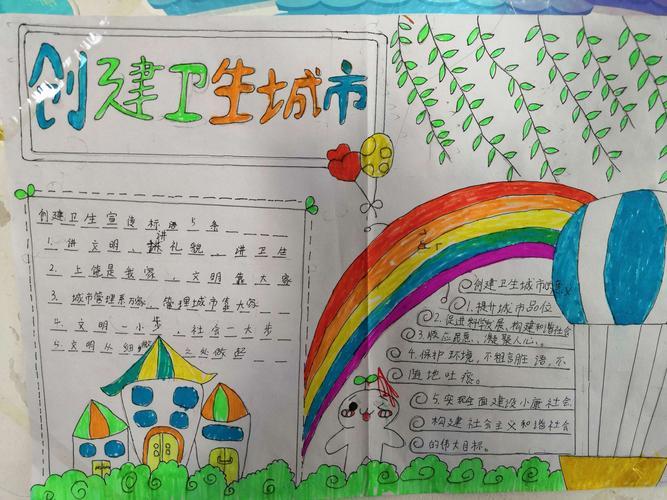 创建卫生城市
创建卫生宣传标 5条
1.讲文明、讲礼貌、讲卫生
2.上饶是我家，文明靠大家
3.城市管理系万家，管理城市靠大家
4.文明一小步，社会一大步
5.文明从细微之处做起
创建卫生城市的意义
1.提升城市品位
2.促进科学发展、构建和谐社会
3.顺应民意、凝聚人心、
4.保护环境，不粗言 语，不
随地吐痰。
5.实现全面建设小康社会、
构建社会主义和谐社会
的伟大目标。